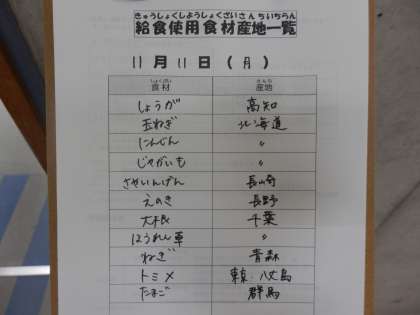 きゅうしょくしようしょくざいさんちいちらん
給食使用食材産地一覧
11月11日(月)
しょくざい さんち
食材 産地
しょうが 高知
玉ねぎ 北海道
にんじん 〃
じゃがいも 〃
さやいんげん 長崎
えのき 長野
大根 千葉
ほうれん草 〃
ねぎ 青森
トミメ 東京・八丈島
たまご 群馬